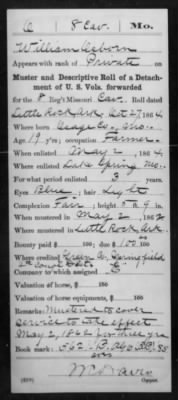 O | 8 Cav. | Mo.
William Osborn
Appears with rank of Private on
Muster and Descriptive Roll of a Detach-
ment of U. S. Vols. forwarded
for the 8 Reg't Missouri Cav. Roll dated
Little Rock Ark Oct 27, 1864.
Where born Osage Co., Mo.
Age 19 y'rs; occupation Farmer
When enlisted May 2, 1864.
Where enlisted Lake Spring Mo.
For what period enlisted 3 years.
Eyes Blue; hair Light
Complexion Fair; height 5 ft. 9 in.
When mustered in May 2, 186
Where mustered in Little Rock Ark
Bounty paid $ 100; due $ 100 100
Where credited Green Co. Springfield
Company to which assigned
Valuation of horse, $ 100
Valuation of horse equipments, $ 100
Remarks: Mustered to cover
service to take effect
May 2, 186
Book mark:
Davis
Copyist.